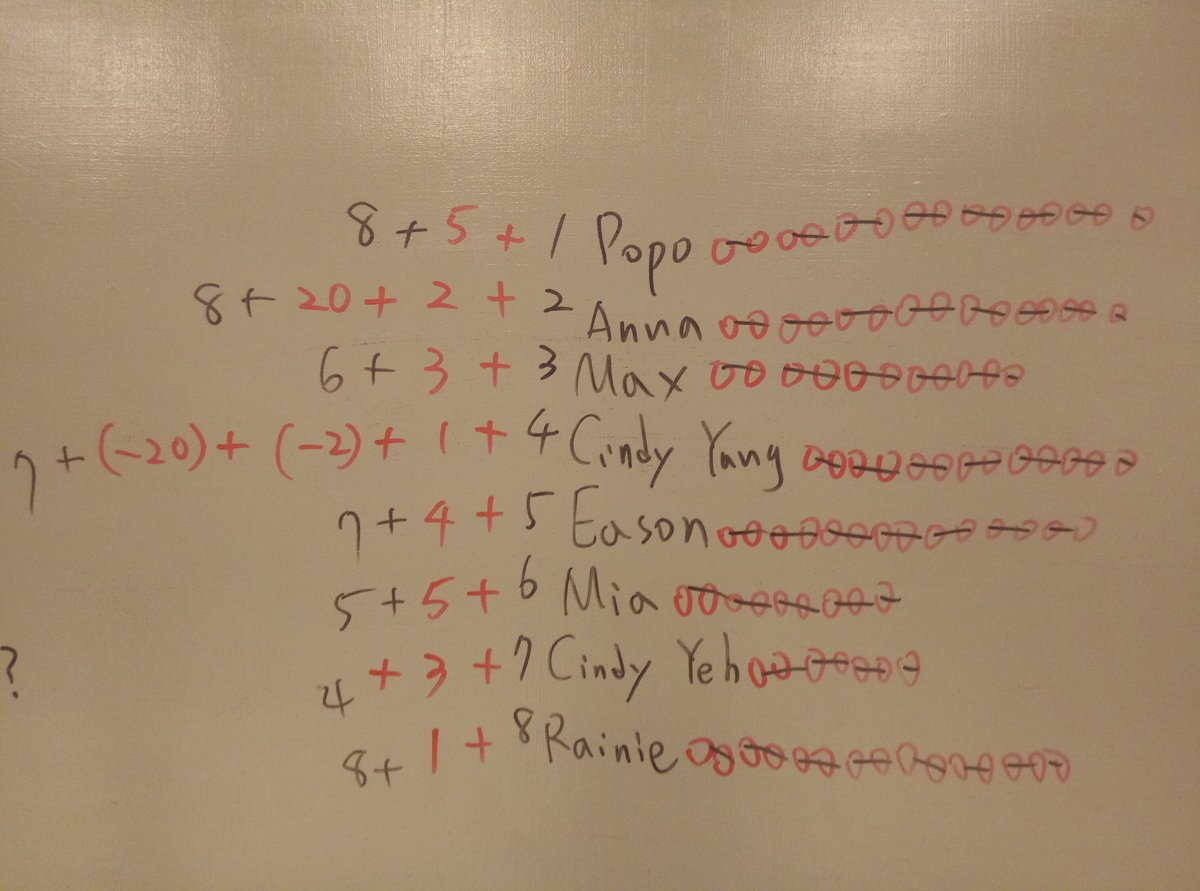 8 + 5 + 1 Popo
8 + 20 + 2 + 2 Anna
6 + 3 + 3 Max
7 + (-20) + (-2) + 1 + 4 Cindy Yang
7 + 4 + 5 Eason
5 + 5 + 6 Mia
? 4 + 3 + 7 Cindy Yeh
8 + 1 + 8 Rainie